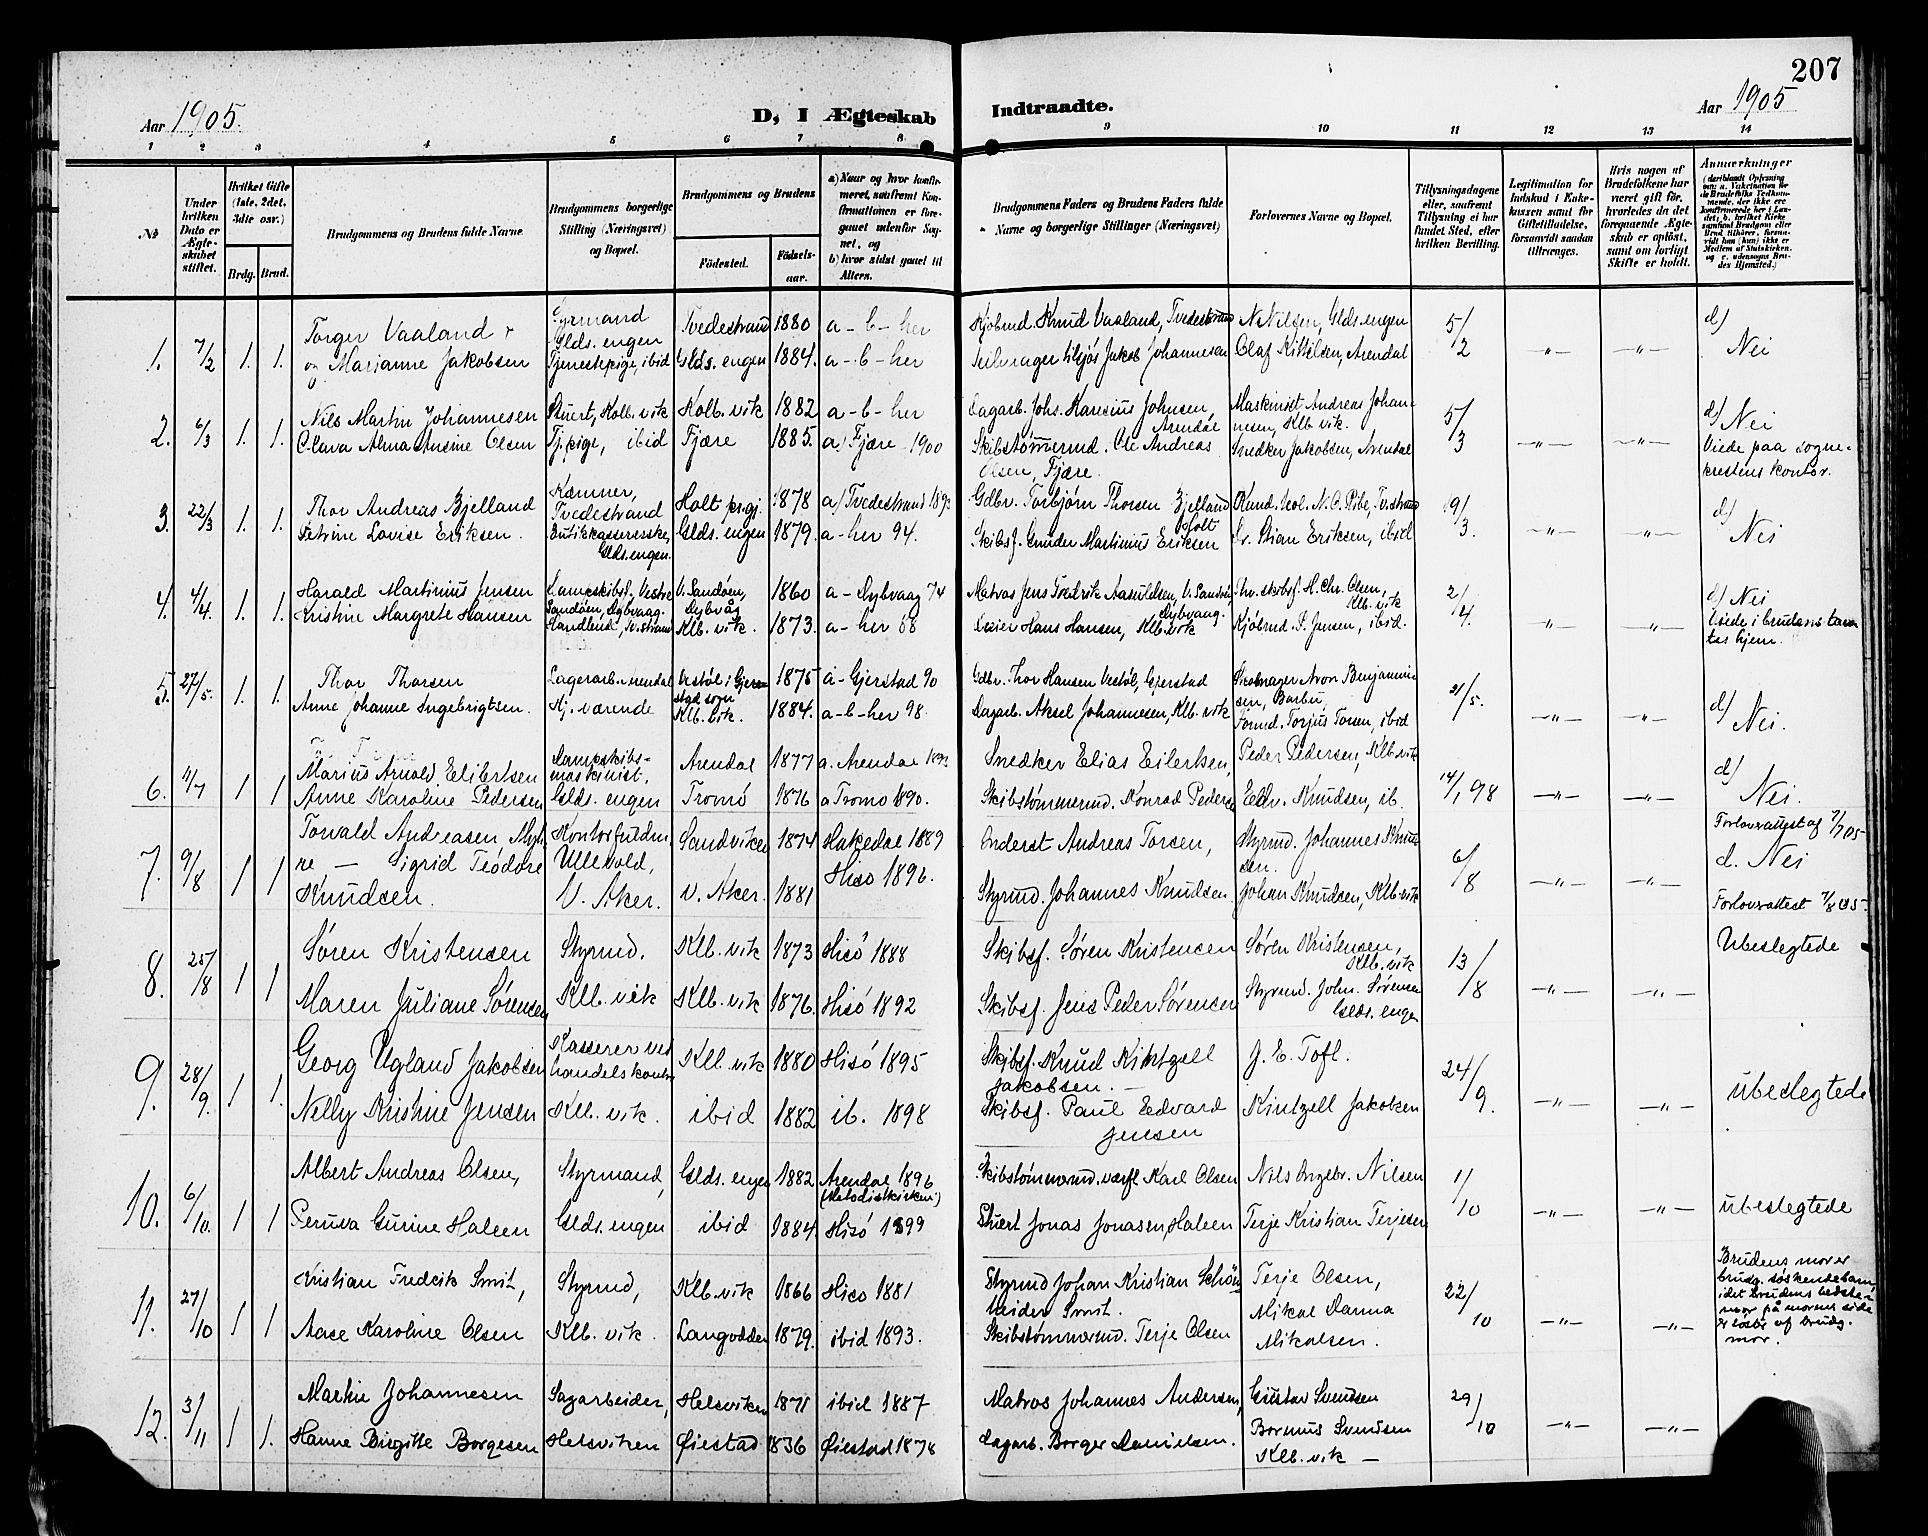 207
Aar 1905.
D, I Ægteskab Indtraadte.
Aar 1905
1 2 3 4 5 6 7 8 9 10 11 12 13 14
No
Under hvilken Dato er Ægteskabet stiftet.
Hvilket Gifte (1ste, 2det, 3die osv.)
Brdg. Brud.
Brudgommens og Brudens fulde Navne
Brudgommens borgerlige Stilling (Næringsvei) og Bopæl.
Brudgommens og Brudens
Fødested.
Fødselsaar.
a) Naar og hvor konfirmeret, saafremt Konfirmationen er foregaaet udenfor Sognet, og
b) hvor sidst gaaet til Alters.
Brudgommens Faders og Brudens Faders fulde Navne og borgerlige Stillinger (Næringsvei)
Forlovernes Navne og Bopæl.
Tillysningsdagene eller, saafremt Tillysning ei har fundet Sted, efter hvilken Bevilling.
Legitimation for Indskud i Enkekassen samt for Giftetilladelse, forsaavidt saadan tiltrænges.
Hvis nogen af Brudefolkene har været gift før, hvorledes da det foregaaende Ægteskab er opløst, samt om lovligt Skifte er holdt.
Anmærkninger
1. 7/2 1. 1. Torger Vaaland Tvedestrand 1880 a-b-her Kjøbmd. Knud Vaaland, Tvedestrand N. Nilsen, Glds.engen 5/2 -"- -"- d)
Glds.engen
og Marianne Jakobsen Tjenestepige, ibid Glds.engen 1884. a-b-her Jakob Johannesen Olaf Kittilsen, Arendal Nei
2. 6/3 1. 1. Nils Martin Johannesen Stuert, Kolb.vik Kolb.vik 1882 a-b-her Dagarb. Johs. Johnsen, Arendal Maskinist Andreas Johannesen, Klb.vik. 5/3 -"- -"- d) Nei
Olava Alma Ansine Olsen Tj.pige, ibid Fjære 1885. a) Fjære 1900 Skibstømmermd. Ole Andreas Olsen, Fjære. Snedker Jakobsen, Arendal Viede paa sogneprestens kontor.
3. 22/3 1. 1. Thor Andreas Bjelland Kæmner, Tvedestrand Holt pr.gj. 1878 a) Tvedestrand 1893 Gdbr. Torbjørn Thorsen Bjelland Holt N. C. Ribe, Tv.strand 19/3. -"- -"- d)
Petrine Lovise Eriksen. Butikkassererske, Glds.engen. Glds.engen 1879. a-her 94. Skibsf. Gunder Martinius Eriksen Stian Eriksen, ibid Nei
4. 4/4. 1. 1. Harald Martinius Jensen Dampskibsf., Vestre Sandøen, Dybvaag. V. Sandøen, Dybvåg 1860 a-Dybvaag 74 Matros Jens Fredrik Aasuldsen, V. Sandø, Dybvaag. H. Chr. Olsen, Klb.vik 2/4. -"- -"- d) Nei
Kristine Margrete Hansen Tv.strand Klb.vik. 1873. a-her 88 Hans Hansen, Klb.vik Kjøbmd. P. Jensen, ibid. Viede i brudens tantes hjem.
5. 27/5. 1. 1. Thor Thorsen Lagerarb. Arendal Vestøl i Gjerstad sogn 1875 a-Gjerstad 90 Gdbr. Thor Hansen Vestøl, Gjerstad Aron Benjaminsen, Barbu, 21/5. -"- -"- d)
Anne Johanne Ingebrigtsen. Hj. værende Klb.vik. 1884. a-b-her 98. Dagarb. Aksel Johannesen, Klb.vik Torjus Torsen, ibid Nei.
6. 4/7 1 1 Marius Arnold Eilertsen Dampskibsmaskinist, Arendal 1877 a. Arendal 1893 Snedker Elias Eilertsen, Peder Pedersen, Klb.vik 14/1 98 -"- -"- d)
Anne Karoline Pedersen Glds.engen Tromø 1876 a Tromø 1890. Skibstømmermd. Konrad Pedersen Edv. Knudsen, ib. Nei.
7. 9/8 1 1 Torvald Andreasen Myhre — Sigrid Teodore Knudsen. Kontorfuldm. Ullevold, V. Aker. Sandviken 1874 Hakedal 1889 Andreas Torsen, Styrmd. Johannes Knudsen. 6/8 -"- -"- Forlovattest af 7/7 05
d. Nei
V. Aker. 1881 Hisø 1896. Styrmd. Johannes Knudsen Johan Knudsen, Klb.vik Forlovattest 7/8 05.
8. 25/8 1 1 Søren Kristensen Styrmd. Klb.vik 1873 Hisø 1888 Skibsf. Søren Kristensen Søren Kristensen, Klb.vik 13/8 -"- -"- Ubeslegtede
Maren Juliane Sørensen Klb.vik Klb.vik 1876. Hisø 1892 Skibsf. Jens Peder Sørensen Styrmd. John. Sørensen Glds.engen
9. 28/9. 1 1. Georg Ugland Jakobsen Kasserer ved handelskontor Klb.vik 1880 Hisø 1895 Skibsf. Knud Kintzell Jakobsen. — J. E. Tofl. 24/9. -"- -"- ubeslegtede
Nelly Kristine Jensen Klb.vik. ibid 1882 ib. 1898 Skibsf. Paul Edvard Jensen Kintzell Jakobsen
10. 6/10. 1 1 Albert Andreas Olsen, Styrmand, Glds.engen 1882 Arendal 1896 (Metodistkirken) Skibstømmermd. værft Karl Olsen Nils Nilsen 1/10 -"- -"- ubeslegtede
Peruva Gurine Halsen Glds.engen ibid 1884. Hisø 1899 Stuert Jonas Jonasen Halsen Terje Kristian Terjesen
11. 27/10 1 1 Kristian Fredrik Smit, Styrmd, Klb.vik 1866 Hisø 1881 Styrmd Johan Kristian Smit. Terje Olsen, 22/10 -"- -"- Brudens mor er brudg. søskendebarn idet brudens bedstemor på morens side er søster af brudg. mor.
Aase Karoline Olsen Klb.vik. Langodden 1879. ibid 1893. Skibstømmermd. Terje Olsen Mikal Danna Mikalsen.
12. 3/11 1 1. Martin Johannesen Sagarbeider, Helsviken 1871 ibid 1887 Matros Johannes Andersen, Gustav Svendsen 29/10 -"- -"-
Hanne Birgitte Borgesen Helsviken Øiestad 1836 Øiestad 1878 Dagarb. Borger Danielsen. Svendsen Klb.vik —